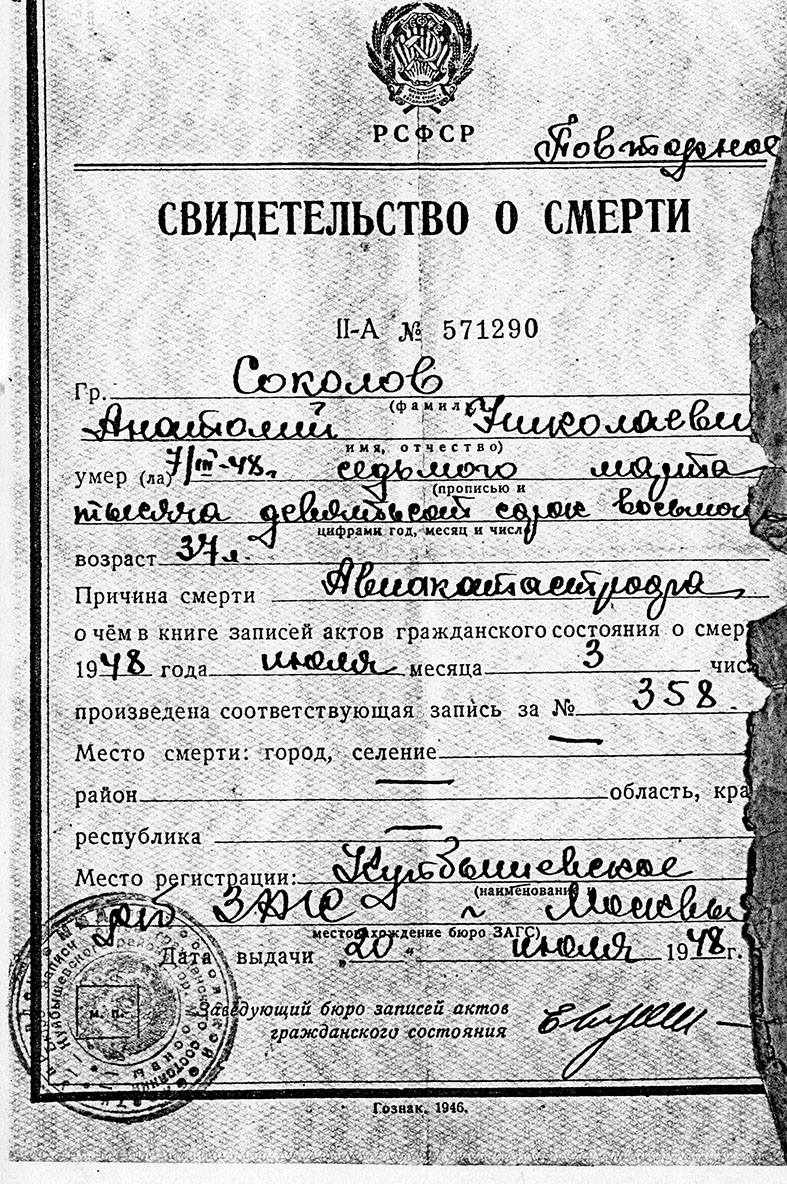 РСФСР
Повторное
СВИДЕТЕЛЬСТВО О СМЕРТИ
II-А № 571290
Гр. Соколов
(фамили
Анатолий Николаеви
имя, отчество)
умер (ла) 7/III-48г. седьмого марта
(прописью и
тысяча девятьсот сорок восьмог
цифрами год, месяц и число
возраст 37 л.
Причина смерти Авиакатастрофа
о чём в книге записей актов гражданского состояния о смер
1948 года июля месяца 3 чис
произведена соответствующая запись за № 358.
Место смерти: город, селение —
район — область, кра
республика —
Место регистрации: Куйбышевское
(наименование и
ЗАГС г. Москвы
местонахождение бюро ЗАГС)
Дата выдачи „20“ июля 1948 г.
м. п.
Заведующий бюро записей актов
гражданского состояния
Гознак. 1946.